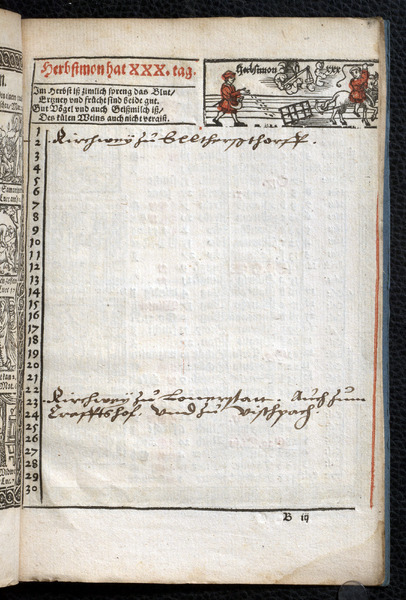 Herbstmon hat XXX. tag.
Im Herbst iß zimlich spreng das Blut/
Ertzney vnd frücht sind beide gut.
Gut Vögel vnd auch Geißmilch iß/
Des külen Weins auch nicht vergiß.
Herbstmon
XXX
1
2 Kirchwey zu
3
4
5
6
7
8
9
10
11
12
13
14
15
16
17
18
19
20
21
22
23 Kirchwey zu Auch zum
24 Crafftshof vnd zu Vischpach
25
26
27
28
29
30
B iij